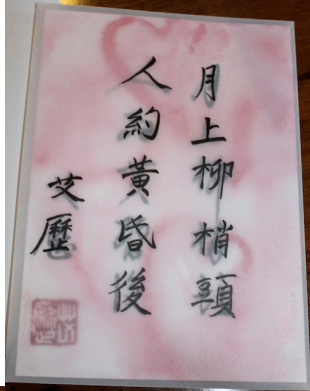 月上柳梢頭
人約黃昏後
艾歷